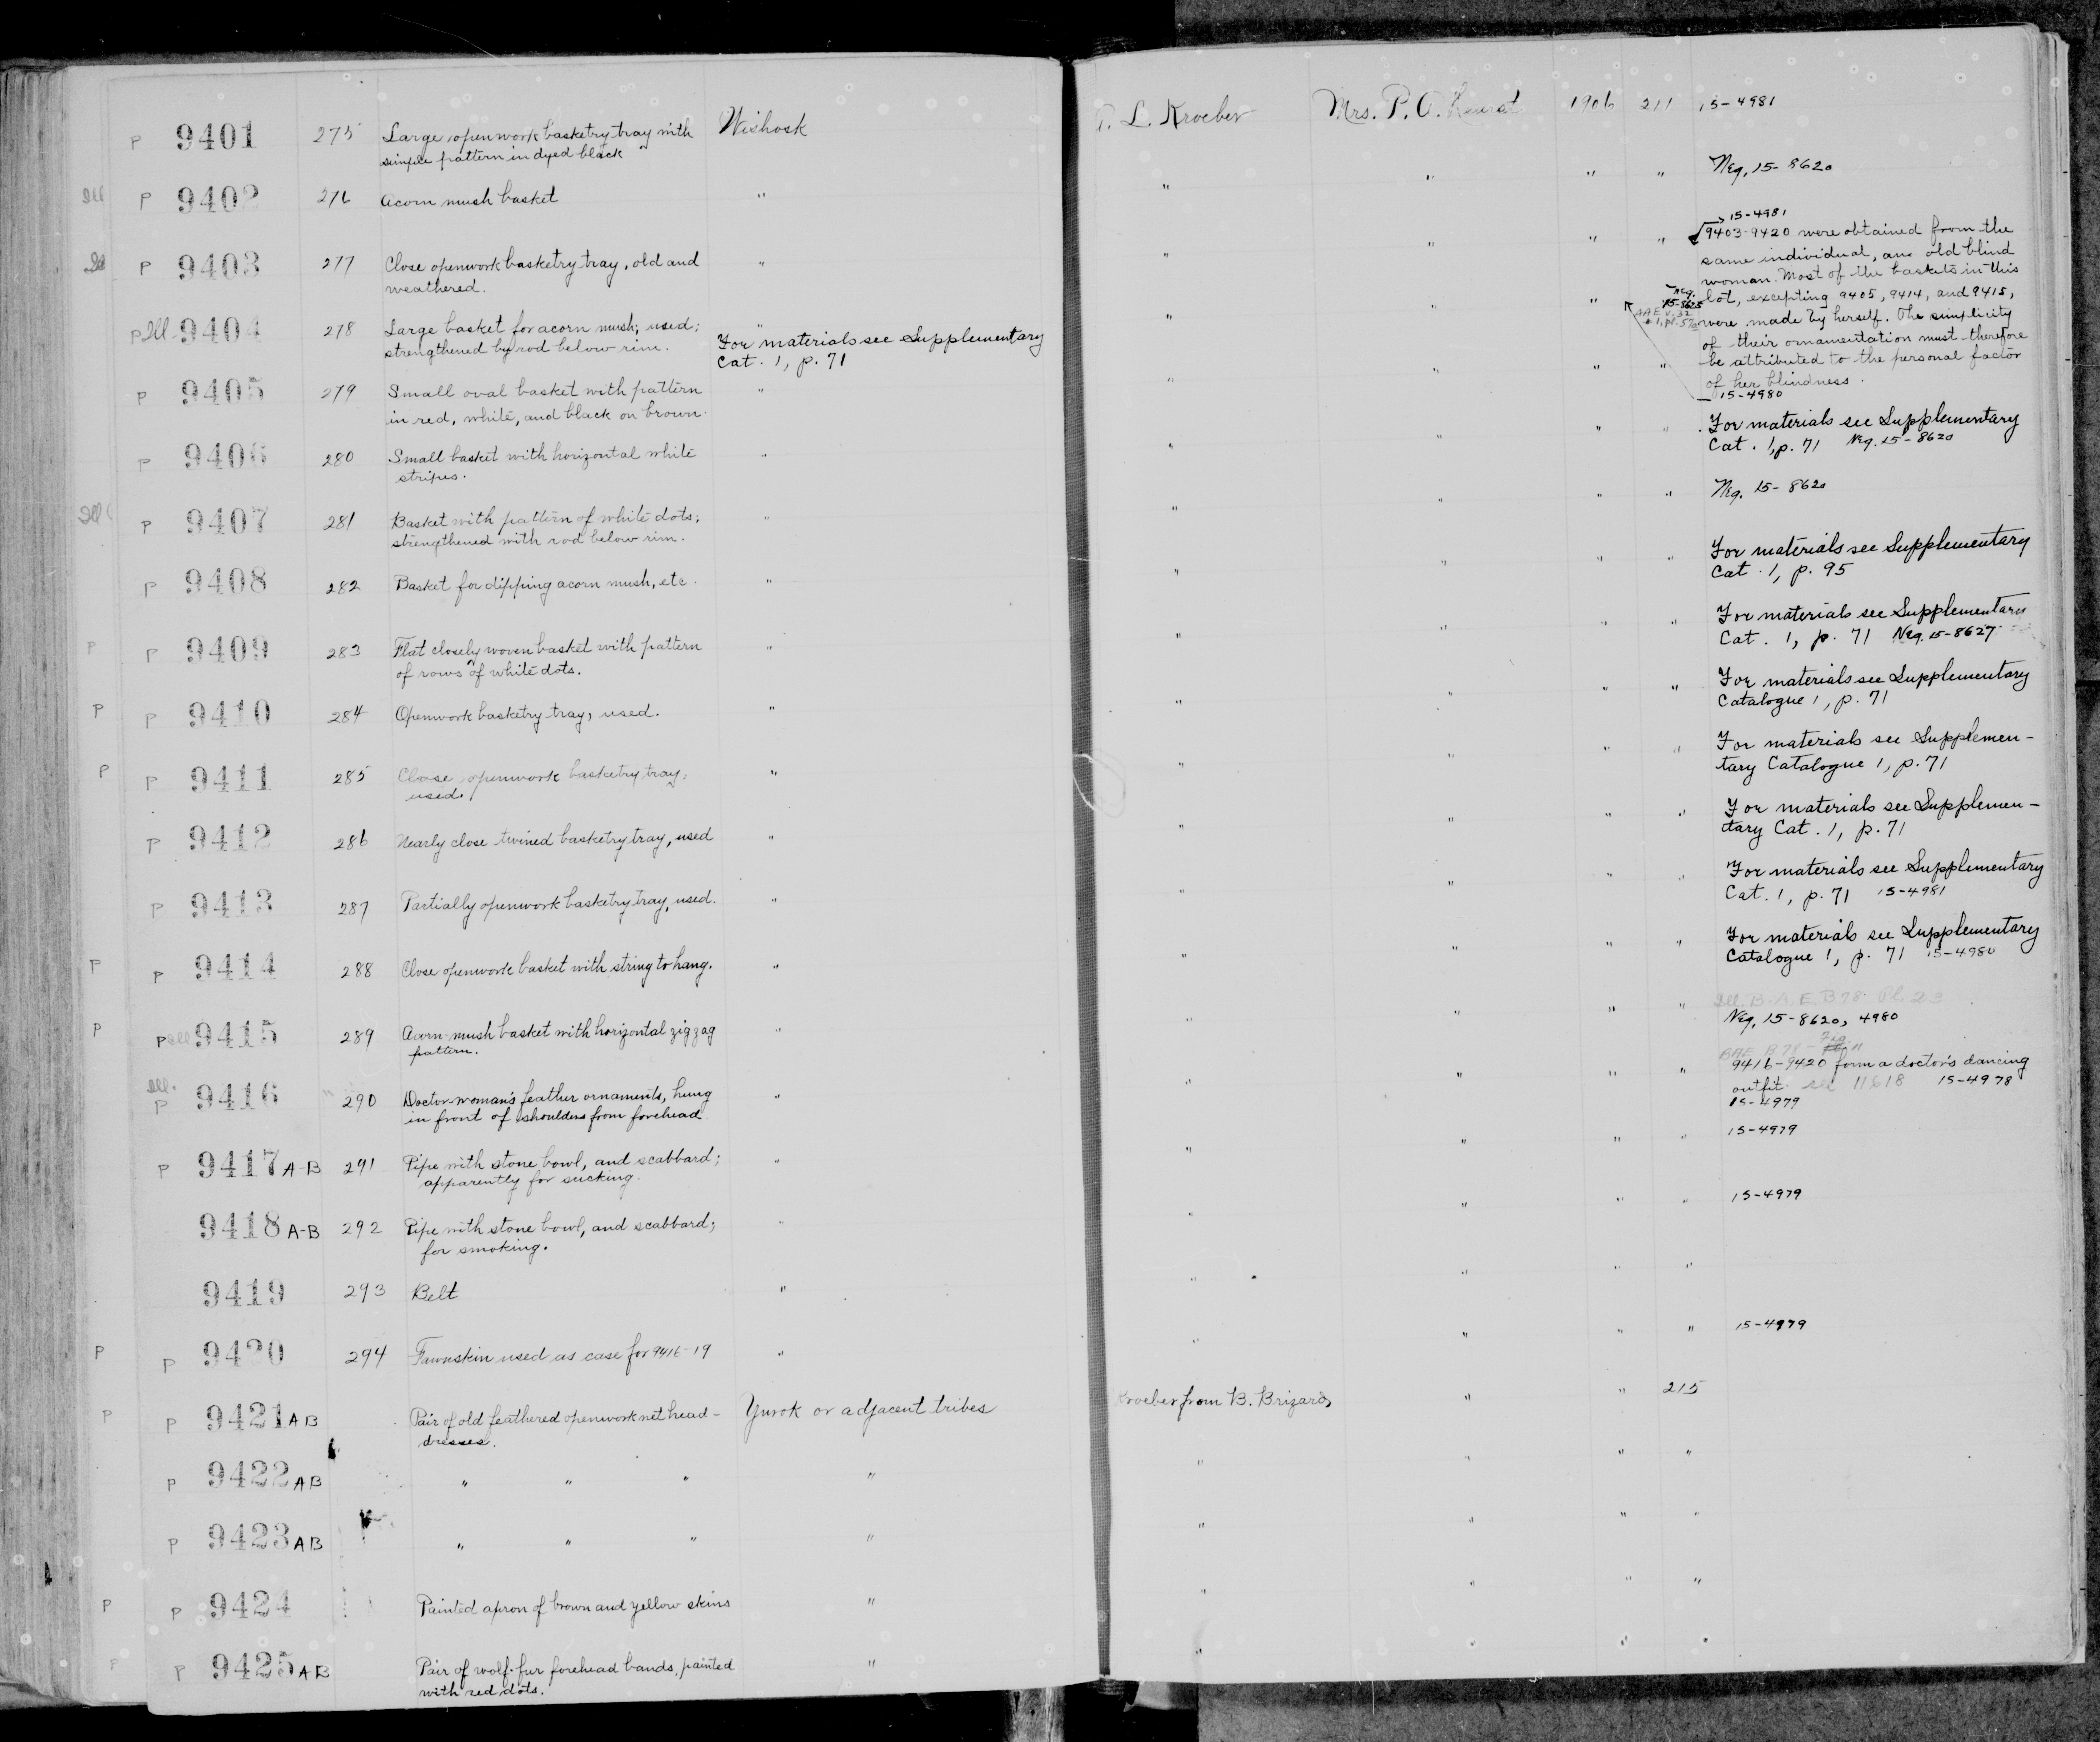 P 9401 275 Large openwork basketry tray with Wishosk A. L. Kroeber Mrs. P. A. Hearst 1906 211 15-4981
simple pattern in dyed black
Ill P 9402 276 Acorn mush basket " " " " " Neg. 15-8620
15-4981
Ill P 9403 277 Close openwork basketry tray, old and " " " " " 9403-9420 were obtained from the
weathered.
same individual, an old blind
woman. Most of the baskets in this
P Ill. 9404 278 Large basket for acorn mush; used; " " " lot, excepting 9405, 9414, and 9415,
strengthened by rod below rim. For materials see Supplementary
Cat. 1, p. 71
Neg. 15-8625
were made by herself. The simplicity
of their ornamentation must therefore
be attributed to the personal factor
of her blindness.
15-4980
P 9405 279 Small oval basket with pattern " " " " "
in red, white, and black on brown.
For materials see Supplementary
Cat. 1, p. 71 Neg. 15-8620
P 9406 280 Small basket with horizontal white " " " " "
stripes.
Neg. 15-8620
Ill P 9407 281 Basket with pattern of white dots; " " " " "
strengthened with rod below rim.
For materials see Supplementary
Cat. 1, p. 95
P 9408 282 Basket for dipping acorn mush, etc. " " " " "
For materials see Supplementary
Cat. 1, p. 71 Neg. 15-8627
P P 9409 283 Flat closely woven basket with pattern " " " " "
of rows of white dots.
For materials see Supplementary
Catalogue 1, p. 71
P P 9410 284 Openwork basketry tray, used. " " " " "
For materials see Supplemen-
tary Catalogue 1, p. 71
P P 9411 285 Close openwork basketry tray, " " " " "
used.
For materials see Supplemen-
tary Cat. 1, p. 71
P 9412 286 Nearly close twined basketry tray, used " " " " "
For materials see Supplementary
Cat. 1, p. 71 15-4981
P 9413 287 Partially openwork basketry tray, used. " " " " "
For materials see Supplementary
Catalogue 1, p. 71 15-4980
P P 9414 288 Close openwork basket with string to hang. " " " " "
Ill. B.A.E. B78 Pl. 23
Neg. 15-8620, 4980
P P Ill 9415 289 Acorn mush basket with horizontal zigzag " " " " "
pattern.
BAE B78- Fig.
9416-9420 form a doctor's dancing
outfit. see 11618 15-4978
15-4979
Ill. P 9416 290 Doctor-woman's feather ornaments, hung " " " " "
in front of shoulders from forehead
15-4979
P 9417 A-B 291 Pipe with stone bowl, and scabbard; " " " " "
apparently for sucking.
15-4979
9418 A-B 292 Pipe with stone bowl, and scabbard; " " " " "
for smoking.
9419 293 Belt " " " " "
15-4979
P P 9420 294 Fawnskin used as case for 9416-19 " " " " "
P P 9421 AB Pair of old feathered openwork net head- Yurok or adjacent tribes Kroeber from B. Brizard " " 215
dresses.
P 9422 AB " " " " " " " "
P 9423 AB " " " " " " " "
P P 9424 Painted apron of brown and yellow skins " " " " "
P P 9425 AB Pair of wolf-fur forehead bands, painted " " " " "
with red dots.